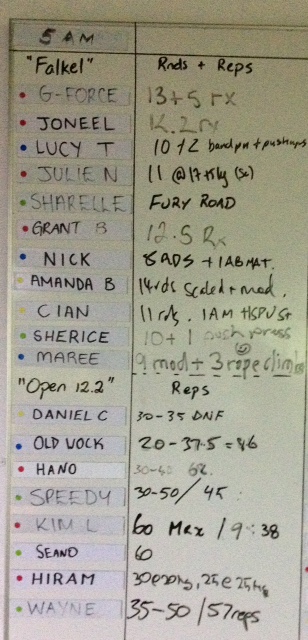 5 AM
"Falkel" Rnds + Reps
G-FORCE 13+5 rx
JONEEL 12.2 rx
LUCY T 10+2 band pu + pushups
JULIE N 11 @ 17+kg
SHARELLE FURY ROAD
GRANT B 12.5 Rx
NICK 8 RDS + 1 ABMAT.
AMANDA B 14 rds Scaled + mod.
CIAN 11 rds. 1AM HSPU St
SHERICE 10+1 push press
MAREE 9 mod + 3 rope clim
"Open 12.2" Reps
DANIEL C 30-35 DNF
OLD WOCK 20-37.5 = 46
HANO 30-
SPEEDY 30-50/ 45
KIM L 60 Max / 9:38
SEANO 60
HIRAM 30@20kg, 25@25kg
WAYNE 35-50 / 57 reps